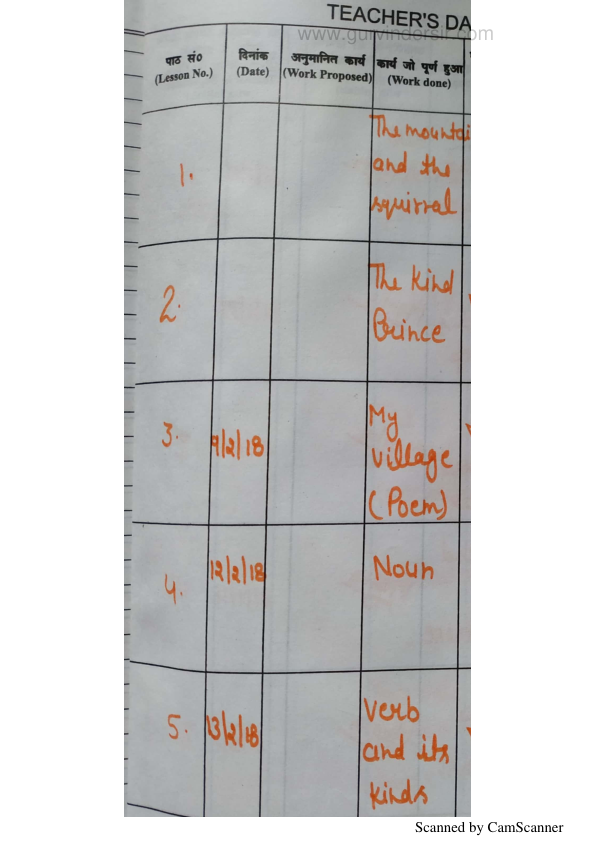 TEACHER'S DA
www.gurvindersir.com
पाठ सं०
(Lesson No.)
दिनांक
(Date)
अनुमानित कार्य
(Work Proposed)
कार्य जो पूर्ण हुआ
(Work done)
1.
The mountai
and the
squirral
2.
The Kind
Prince
3.
9/2/18
My
village
(Poem)
4.
12/2/18
Noun
5.
13/2/18
verb
and its
kinds
Scanned by CamScanner